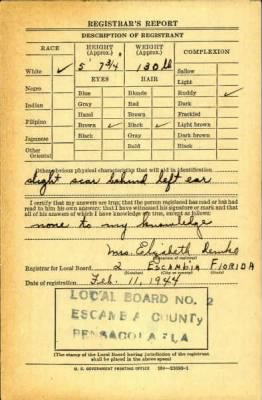 REGISTRAR'S REPORT
DESCRIPTION OF REGISTRANT
RACE HEIGHT (Approx.) WEIGHT (Approx.) COMPLEXION
White ✓ 5' 7 3/4 130 lb Sallow
EYES HAIR Light
Negro Blue Blonde Ruddy ✓
Indian Gray Red Dark
Filipino Hazel Brown Freckled
Japanese Brown ✓ Black ✓ Light brown
Other Oriental Black Gray Dark brown
Bald Black
Other obvious physical characteristics that will aid in identification
slight scar behind left ear
I certify that my answers are true; that the person registered has read or has had
read to him his own answers; that I have witnessed his signature or mark and that
all of his answers of which I have knowledge are true, except as follows:
none to my knowledge
Mrs. Elizabeth
(Signature of registrar)
Registrar for Local Board 2 ESCAMBIA FLORIDA
(Number) (City or county) (State)
Date of registration Feb. 11, 1944
LOCAL BOARD NO. 2
ESCAMBIA COUNTY
PENSACOLA FLA
(The stamp of the Local Board having jurisdiction of the registrant
shall be placed in the above space)
U. S. GOVERNMENT PRINTING OFFICE